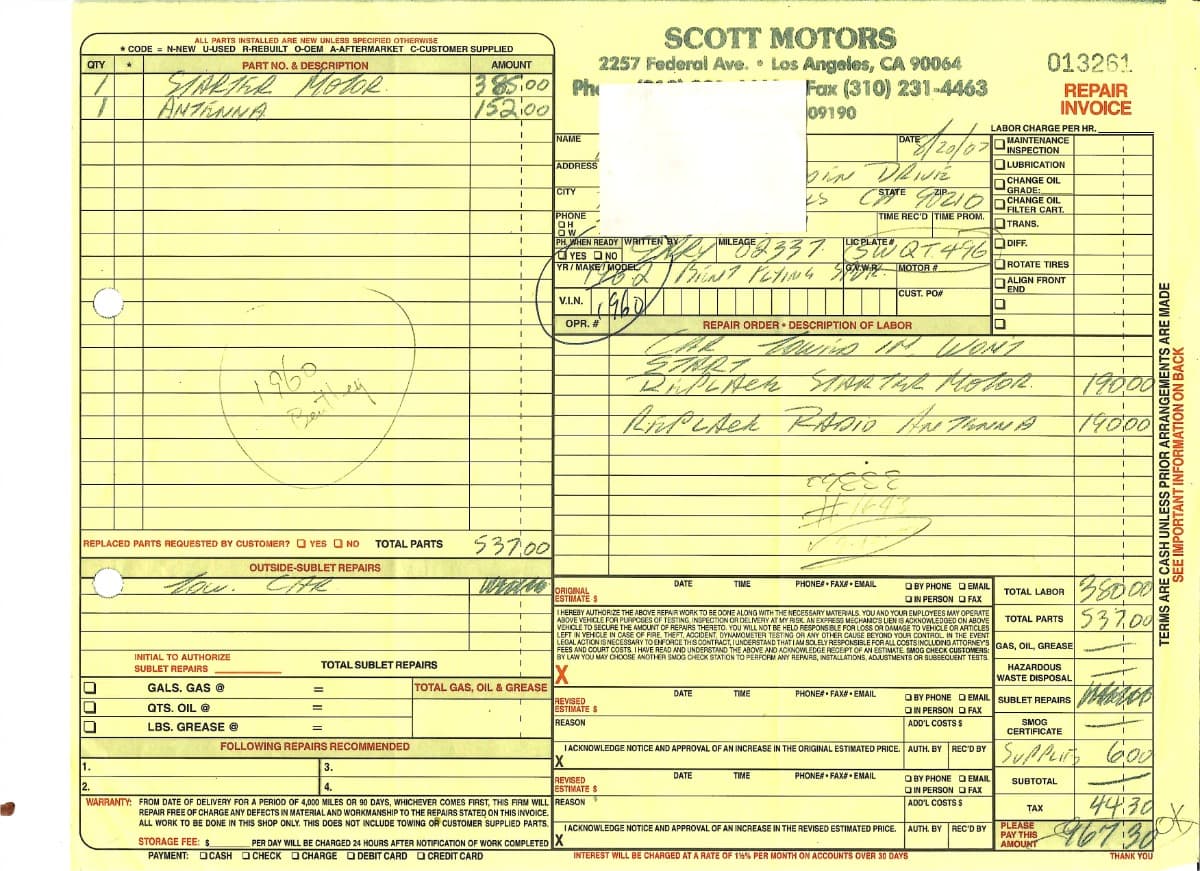 ALL PARTS INSTALLED ARE NEW UNLESS SPECIFIED OTHERWISE
* CODE = N-NEW U-USED R-REBUILT O-OEM A-AFTERMARKET C-CUSTOMER SUPPLIED
QTY * PART NO. & DESCRIPTION AMOUNT
1 STARTER MOTOR. 385.00
1 ANTENNA 152.00
1960
Bentley
REPLACED PARTS REQUESTED BY CUSTOMER? YES NO TOTAL PARTS 537.00
OUTSIDE-SUBLET REPAIRS
TOW. CAR
INITIAL TO AUTHORIZE
SUBLET REPAIRS
TOTAL SUBLET REPAIRS
GALS. GAS @ = TOTAL GAS, OIL & GREASE
QTS. OIL @ =
LBS. GREASE @ =
FOLLOWING REPAIRS RECOMMENDED
1. 3.
2. 4.
WARRANTY: FROM DATE OF DELIVERY FOR A PERIOD OF 4,000 MILES OR 90 DAYS, WHICHEVER COMES FIRST, THIS FIRM WILL
REPAIR FREE OF CHARGE ANY DEFECTS IN MATERIAL AND WORKMANSHIP TO THE REPAIRS STATED ON THIS INVOICE.
ALL WORK TO BE DONE IN THIS SHOP ONLY. THIS DOES NOT INCLUDE TOWING OR CUSTOMER SUPPLIED PARTS.
STORAGE FEE: $ PER DAY WILL BE CHARGED 24 HOURS AFTER NOTIFICATION OF WORK COMPLETED
PAYMENT: CASH CHECK CHARGE DEBIT CARD CREDIT CARD
SCOTT MOTORS
2257 Federal Ave. • Los Angeles, CA 90064
Fax (310) 231-4463
09190
013261
REPAIR
INVOICE
NAME DATE 8/20/07
ADDRESS DRIVE
CITY STATE CA ZIP 90210
PHONE H W TIME REC'D TIME PROM.
PH. WHEN READY YES NO WRITTEN BY GARY MILEAGE 02337. LIC PLATE # SWQT.496
YR / MAKE / MODEL G.V.W.R. MOTOR #
V.I.N. 1960 CUST. PO#
OPR. # REPAIR ORDER • DESCRIPTION OF LABOR
CAR TOWING IN WONT
START
REPLACE STARTER MOTOR. 190 00
REPLACE RADIO ANTENNA 190 00
#1643
LABOR CHARGE PER HR.
MAINTENANCE INSPECTION
LUBRICATION
CHANGE OIL GRADE:
CHANGE OIL FILTER CART.
TRANS.
DIFF.
ROTATE TIRES
ALIGN FRONT END
ORIGINAL ESTIMATE $ DATE TIME PHONE# • FAX# • EMAIL BY PHONE EMAIL IN PERSON FAX
I HEREBY AUTHORIZE THE ABOVE REPAIR WORK TO BE DONE ALONG WITH THE NECESSARY MATERIALS. YOU AND YOUR EMPLOYEES MAY OPERATE
ABOVE VEHICLE FOR PURPOSES OF TESTING, INSPECTION OR DELIVERY AT MY RISK. AN EXPRESS MECHANIC'S LIEN IS ACKNOWLEDGED ON ABOVE
VEHICLE TO SECURE THE AMOUNT OF REPAIRS THERETO. YOU WILL NOT BE HELD RESPONSIBLE FOR LOSS OR DAMAGE TO VEHICLE OR ARTICLES
LEFT IN VEHICLE IN CASE OF FIRE, THEFT, ACCIDENT, DYNAMOMETER TESTING OR ANY OTHER CAUSE BEYOND YOUR CONTROL. IN THE EVENT
LEGAL ACTION IS NECESSARY TO ENFORCE THIS CONTRACT, I UNDERSTAND THAT I AM SOLELY RESPONSIBLE FOR ALL COSTS INCLUDING ATTORNEY'S
FEES AND COURT COSTS. I HAVE READ AND UNDERSTAND THE ABOVE AND ACKNOWLEDGE RECEIPT OF AN ESTIMATE. SMOG CHECK CUSTOMERS:
BY LAW YOU MAY CHOOSE ANOTHER SMOG CHECK STATION TO PERFORM ANY REPAIRS, INSTALLATIONS, ADJUSTMENTS OR SUBSEQUENT TESTS.
X
REVISED ESTIMATE $ DATE TIME PHONE# • FAX# • EMAIL BY PHONE EMAIL IN PERSON FAX
REASON ADD'L COSTS $
I ACKNOWLEDGE NOTICE AND APPROVAL OF AN INCREASE IN THE ORIGINAL ESTIMATED PRICE. AUTH. BY REC'D BY
X
REVISED ESTIMATE $ DATE TIME PHONE# • FAX# • EMAIL BY PHONE EMAIL IN PERSON FAX
REASON ADD'L COSTS $
I ACKNOWLEDGE NOTICE AND APPROVAL OF AN INCREASE IN THE REVISED ESTIMATED PRICE. AUTH. BY REC'D BY
X
INTEREST WILL BE CHARGED AT A RATE OF 1½% PER MONTH ON ACCOUNTS OVER 30 DAYS
TOTAL LABOR 380 00
TOTAL PARTS 537.00
GAS, OIL, GREASE —
HAZARDOUS WASTE DISPOSAL —
SUBLET REPAIRS
SMOG CERTIFICATE —
SUPPLIES 6 00
SUBTOTAL —
TAX 44.30
PLEASE PAY THIS AMOUNT 967.30 OK
THANK YOU
TERMS ARE CASH UNLESS PRIOR ARRANGEMENTS ARE MADE
SEE IMPORTANT INFORMATION ON BACK